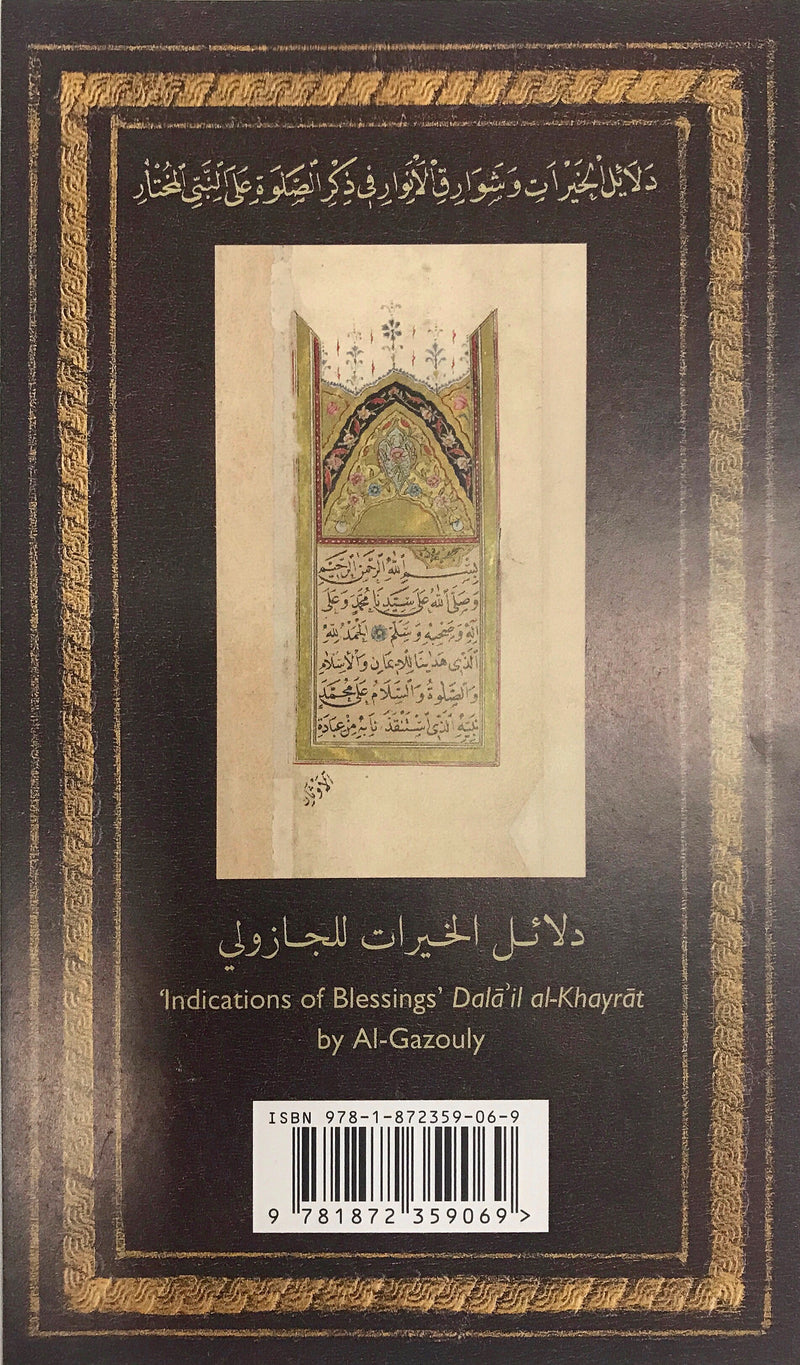 دَلَائِلُ الْخَيْرَاتِ وَشَوَارِقُ الْأَنْوَارِ فِي ذِكْرِ الصَّلَوٰةِ عَلَى النَّبِيِّ الْمُخْتَارِ
بِسْمِ اللّٰهِ الرَّحْمٰنِ الرَّحِيمِ
وَصَلَّى اللّٰهُ عَلَى سَيِّدِنَا مُحَمَّدٍ وَعَلَى
اٰلِهِ وَصَحْبِهِ وَسَلَّمَ الْحَمْدُ لِلّٰهِ
الَّذِى هَدٰينَا لِلْاِيمَانِ وَالْاِسْلَامِ
وَالصَّلٰوةُ وَالسَّلَامُ عَلَى مُحَمَّدٍ
نَبِيِّهِ الَّذِى اسْتَنْقَذَنَا بِهِ مِنْ عِبَادَةِ
الْاَوْثَانِ
دلائل الخيرات للجازولي
‘Indications of Blessings’ Dalāʾil al-Khayrāt
by Al-Gazouly
ISBN 978-1-872359-06-9
9 781872 359069 >